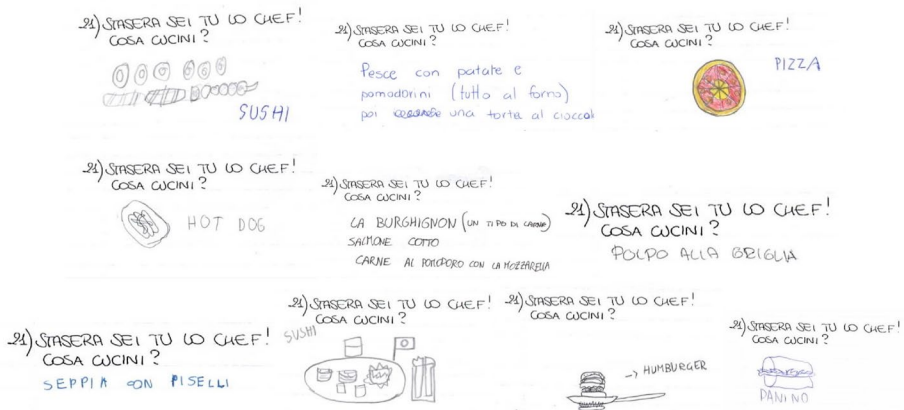 21) STASERA SEI TU LO CHEF!
COSA CUCINI?
SUSHI
21) STASERA SEI TU LO CHEF!
COSA CUCINI?
Pesce con patate e
pomodorini (tutto al forno)
poi una torta al cioccol
21) STASERA SEI TU LO CHEF!
COSA CUCINI?
PIZZA
21) STASERA SEI TU LO CHEF!
COSA CUCINI?
HOT DOG
21) STASERA SEI TU LO CHEF!
COSA CUCINI?
LA BURGHIGNON (UN TIPO DI CARNE)
SALMONE COTTO
CARNE AL POMODORO CON LA MOZZARELLA
21) STASERA SEI TU LO CHEF!
COSA CUCINI?
POLPO ALLA BRIGLIA
21) STASERA SEI TU LO CHEF!
COSA CUCINI?
SEPPIA CON PISELLI
21) STASERA SEI TU LO CHEF!
COSA CUCINI?
SUSHI
21) STASERA SEI TU LO CHEF!
COSA CUCINI?
-> HUMBURGER
21) STASERA SEI TU LO CHEF!
COSA CUCINI?
PANINO